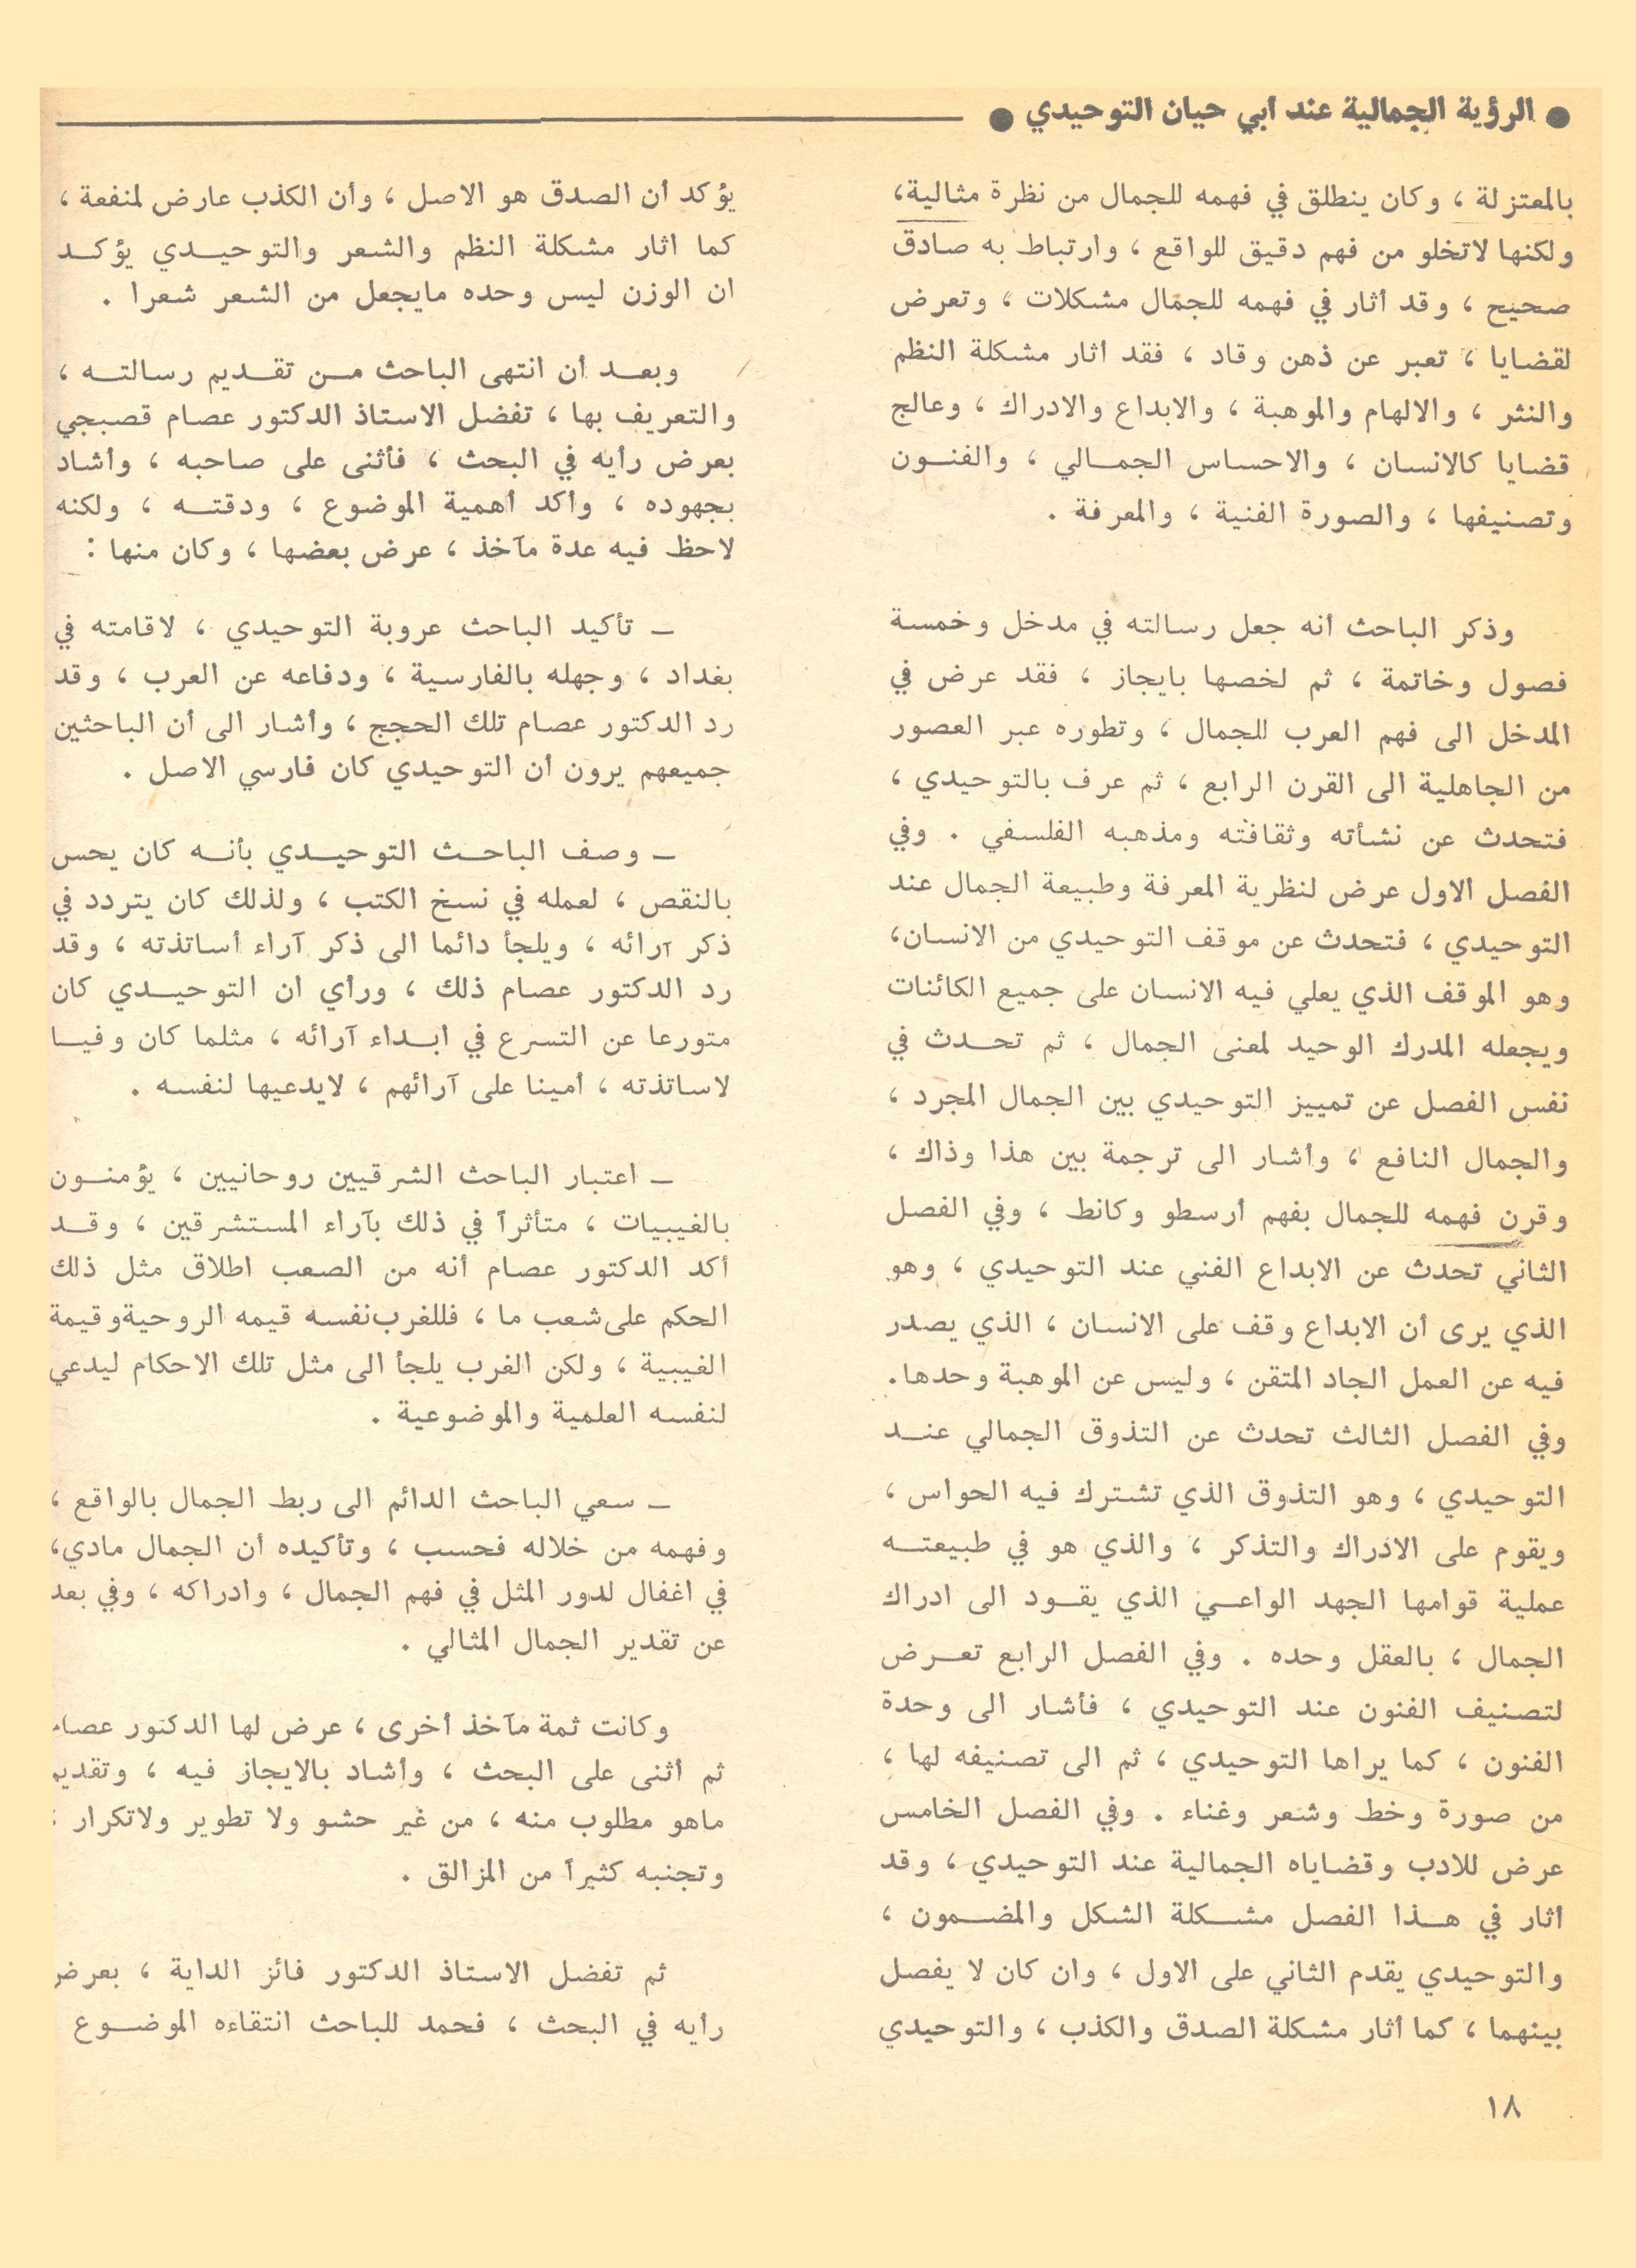 ● الرؤية الجمالية عند أبي حيان التوحيدي ●
بالمعتزلة ، وكان ينطلق في فهمه للجمال من نظرة مثالية،
ولكنها لاتخلو من فهم دقيق للواقع ، وارتباط به صادق
صحيح ، وقد أثار في فهمه للجمال مشكلات ، وتعرض
لقضايا ، تعبر عن ذهن وقاد ، فقد أثار مشكلة النظم
والنثر ، والالهام والموهبة ، والابداع والادراك ، وعالج
قضايا كالانسان ، والاحساس الجمالي ، والفنون
وتصنيفها ، والصورة الفنية ، والمعرفة .
وذكر الباحث أنه جعل رسالته في مدخل وخمسة
فصول وخاتمة ، ثم لخصها بايجاز ، فقد عرض في
المدخل الى فهم العرب للجمال ، وتطوره عبر العصور
من الجاهلية الى القرن الرابع ، ثم عرف بالتوحيدي ،
فتحدث عن نشأته وثقافته ومذهبه الفلسفي . وفي
الفصل الاول عرض لنظرية المعرفة وطبيعة الجمال عند
التوحيدي ، فتحدث عن موقف التوحيدي من الانسان،
وهو الموقف الذي يعلي فيه الانسان على جميع الكائنات
ويجعله المدرك الوحيد لمعنى الجمال ، ثم تحدث في
نفس الفصل عن تمييز التوحيدي بين الجمال المجرد ،
والجمال النافع ، وأشار الى ترجمة بين هذا وذاك ،
وقرن فهمه للجمال بفهم أرسطو وكانط ، وفي الفصل
الثاني تحدث عن الابداع الفني عند التوحيدي ، وهو
الذي يرى أن الابداع وقف على الانسان ، الذي يصدر
فيه عن العمل الجاد المتقن ، وليس عن الموهبة وحدها.
وفي الفصل الثالث تحدث عن التذوق الجمالي عند
التوحيدي ، وهو التذوق الذي تشترك فيه الحواس ،
ويقوم على الادراك والتذكر ، والذي هو في طبيعته
عملية قوامها الجهد الواعي الذي يقود الى ادراك
الجمال ، بالعقل وحده . وفي الفصل الرابع تعرض
لتصنيف الفنون عند التوحيدي ، فأشار الى وحدة
الفنون ، كما يراها التوحيدي ، ثم الى تصنيفه لها ،
من صورة وخط وشعر وغناء . وفي الفصل الخامس
عرض للادب وقضاياه الجمالية عند التوحيدي ، وقد
أثار في هذا الفصل مشكلة الشكل والمضمون ،
والتوحيدي يقدم الثاني على الاول ، وان كان لا يفصل
بينهما ، كما أثار مشكلة الصدق والكذب ، والتوحيدي
يؤكد أن الصدق هو الاصل ، وأن الكذب عارض لمنفعة ،
كما اثار مشكلة النظم والشعر والتوحيدي يؤكد
ان الوزن ليس وحده مايجعل من الشعر شعرا .
وبعد أن انتهى الباحث من تقديم رسالته ،
والتعريف بها ، تفضل الاستاذ الدكتور عصام قصبجي
بعرض رأيه في البحث ، فأثنى على صاحبه ، وأشاد
بجهوده ، وأكد أهمية الموضوع ، ودقته ، ولكنه
لاحظ فيه عدة مآخذ ، عرض بعضها ، وكان منها :
– تأكيد الباحث عروبة التوحيدي ، لاقامته في
بغداد ، وجهله بالفارسية ، ودفاعه عن العرب ، وقد
رد الدكتور عصام تلك الحجج ، وأشار الى أن الباحثين
جميعهم يرون أن التوحيدي كان فارسي الاصل .
– وصف الباحث التوحيدي بأنه كان يحس
بالنقص ، لعمله في نسخ الكتب ، ولذلك كان يتردد في
ذكر آرائه ، ويلجأ دائما الى ذكر آراء أساتذته ، وقد
رد الدكتور عصام ذلك ، ورأي ان التوحيدي كان
متورعا عن التسرع في ابداء آرائه ، مثلما كان وفيا
لاساتذته ، أمينا على آرائهم ، لايدعيها لنفسه .
– اعتبار الباحث الشرقيين روحانيين ، يؤمنون
بالغيبيات ، متأثراً في ذلك بآراء المستشرقين ، وقد
أكد الدكتور عصام أنه من الصعب اطلاق مثل ذلك
الحكم على شعب ما ، فللغرب نفسه قيمه الروحية وقيمة
الغيبية ، ولكن الغرب يلجأ الى مثل تلك الاحكام ليدعي
لنفسه العلمية والموضوعية .
– سعي الباحث الدائم الى ربط الجمال بالواقع ،
وفهمه من خلاله فحسب ، وتأكيده أن الجمال مادي،
في اغفال لدور المثل في فهم الجمال ، وادراكه ، وفي بعد
عن تقدير الجمال المثالي .
وكانت ثمة مآخذ أخرى ، عرض لها الدكتور عصام
ثم أثنى على البحث ، وأشاد بالايجاز فيه ، وتقديم
ماهو مطلوب منه ، من غير حشو ولا تطوير ولاتكرار ؛
وتجنبه كثيراً من المزالق .
ثم تفضل الاستاذ الدكتور فائز الداية ، بعرض
رأيه في البحث ، فحمد للباحث انتقاءه الموضوع
١٨